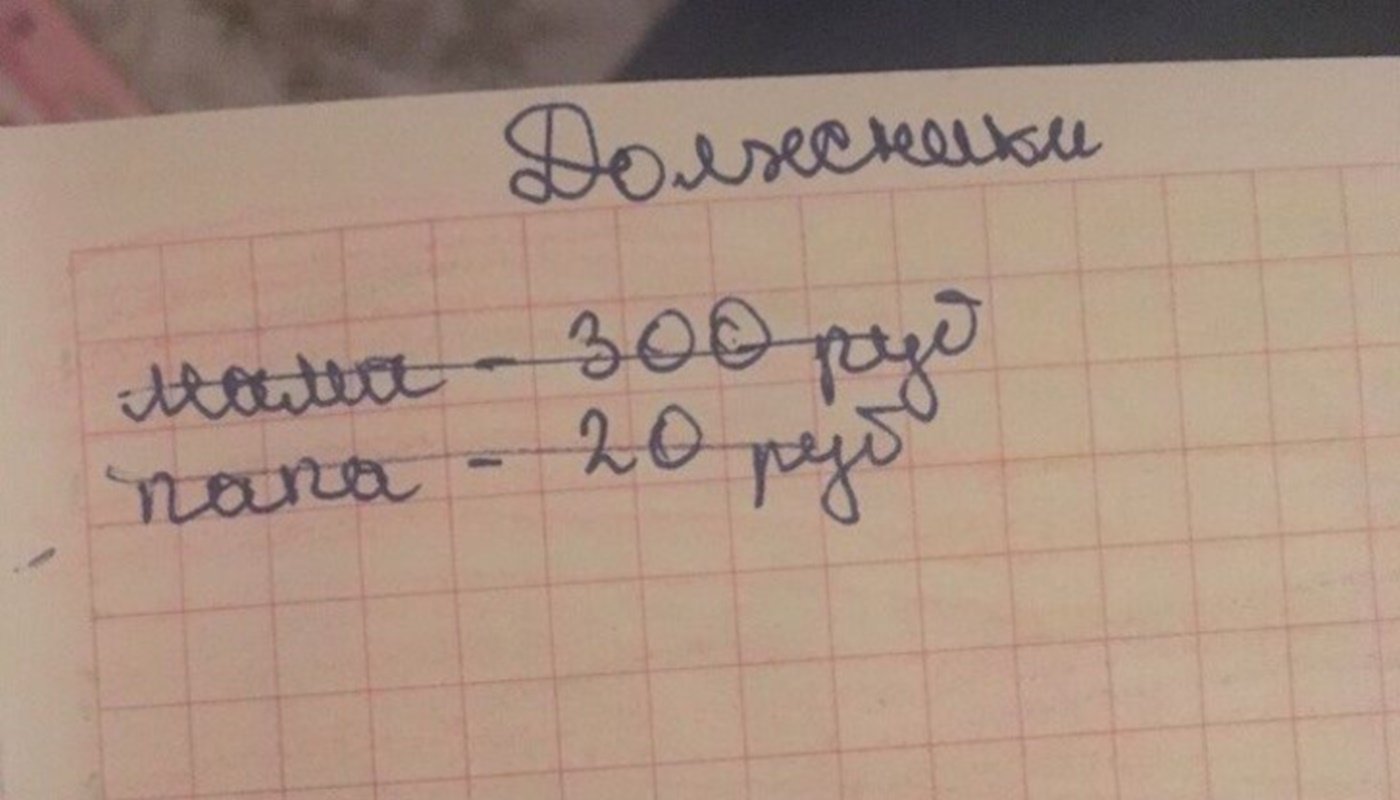 Должники
мама - 300 руб
папа - 20 руб